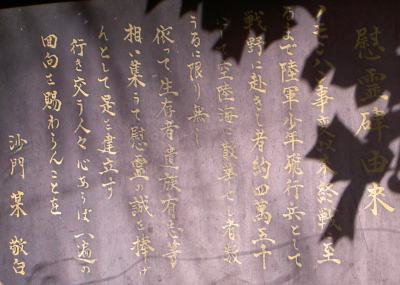 慰霊碑由来
ノモンハン事変以来終戦に至
るまで陸軍少年飛行兵として
戦野に赴きし者約四萬五千
にして空陸海に散華せし者数
うるに限り無し
依て生存者遺族有志等
相い集うて慰霊の誠を捧げ
んとて是を建立す
行き交う人々心あらば一遍の
回向を賜わらんことを
沙門某敬白